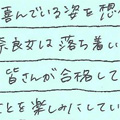 喜んでいる姿を想
奈良女は落ち着い
皆さんが合格して
しを楽しみにしてい